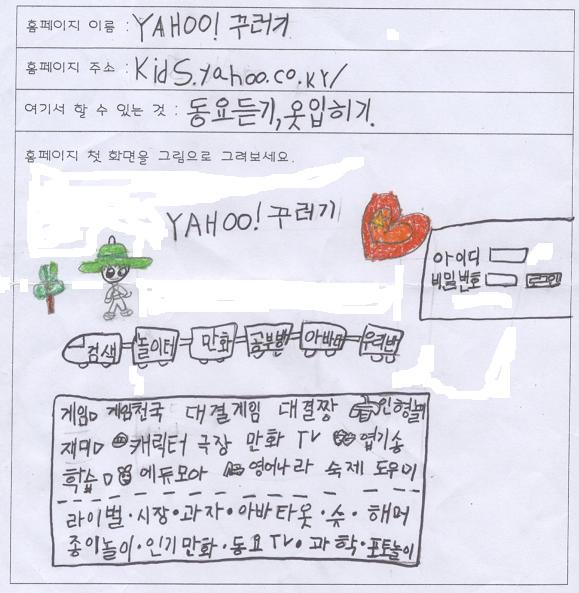 홈페이지 이름 : YAHOO! 꾸러기
홈페이지 주소 : Kids.yahoo.co.kr/
여기서 할 수 있는 것 : 동요듣기, 옷입히기.
홈페이지 첫 화면을 그림으로 그려보세요.
YAHOO! 꾸러기
아이디
비밀번호 로그인
검색 놀이터 만화 공부방 아바타 우리반
게임 게임천국 대결게임 대결짱 인형놀이
재미 캐릭터 극장 만화 TV 엽기송
학습 에듀모아 영어나라 숙제 도우미
라이벌·시장·과자·아바타옷·슈·해머
종이놀이·인기만화·동요TV·과학·포토놀이